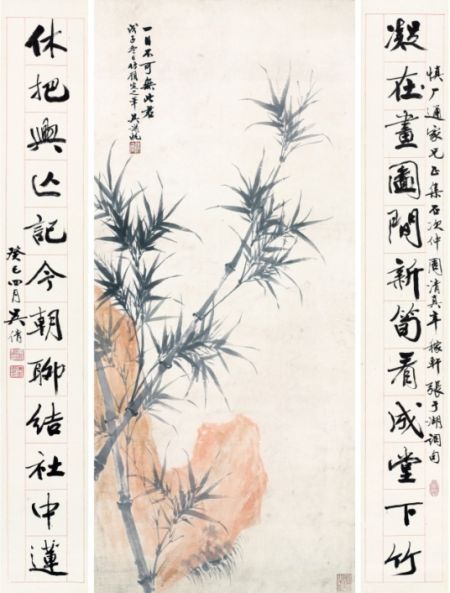 凝在畫圖間新筍看成堂下竹
慎厂通家兄正集石次仲周清真辛稼軒張于湖詞句
一日不可無此君
戊子冬日仿顧定之筆吳湖帆
休把興亡記今朝聊結社中蓮
癸巳四月吳倩